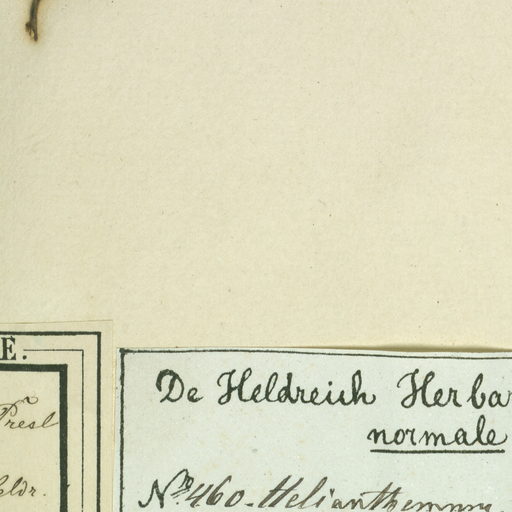 E.
Presl
eldr.
De Heldreich Herba
normale
No. 460. Helianthemum